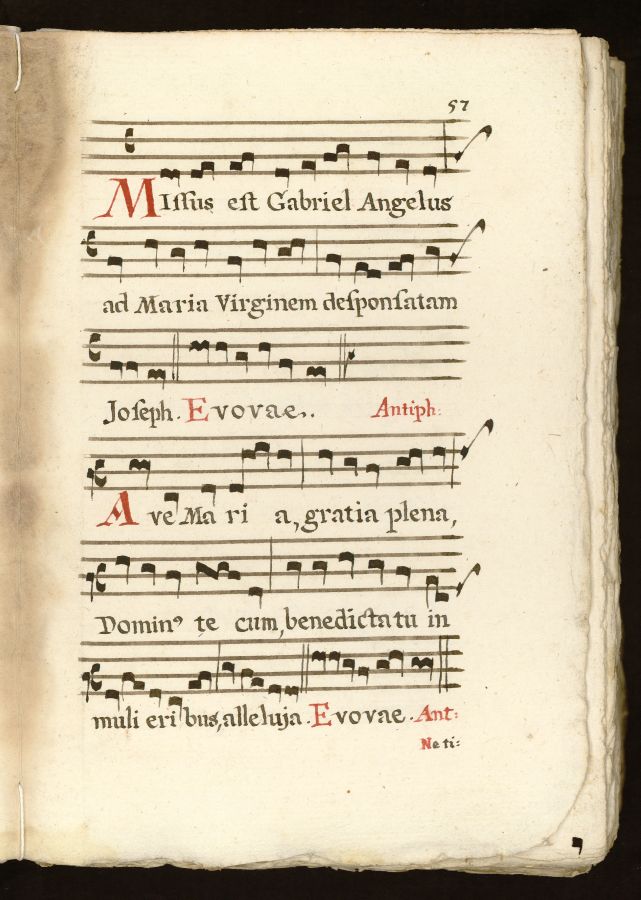 57
Miſſus eſt Gabriel Angelus
ad Maria Virginem deſponſatam
Joſeph. Evovae.. Antiph:
Ave Maria, gratia plena,
Domin⁹ tecum, benedicta tu in
mulieribus, alleluja. Evovae. Ant:
Ne ti: